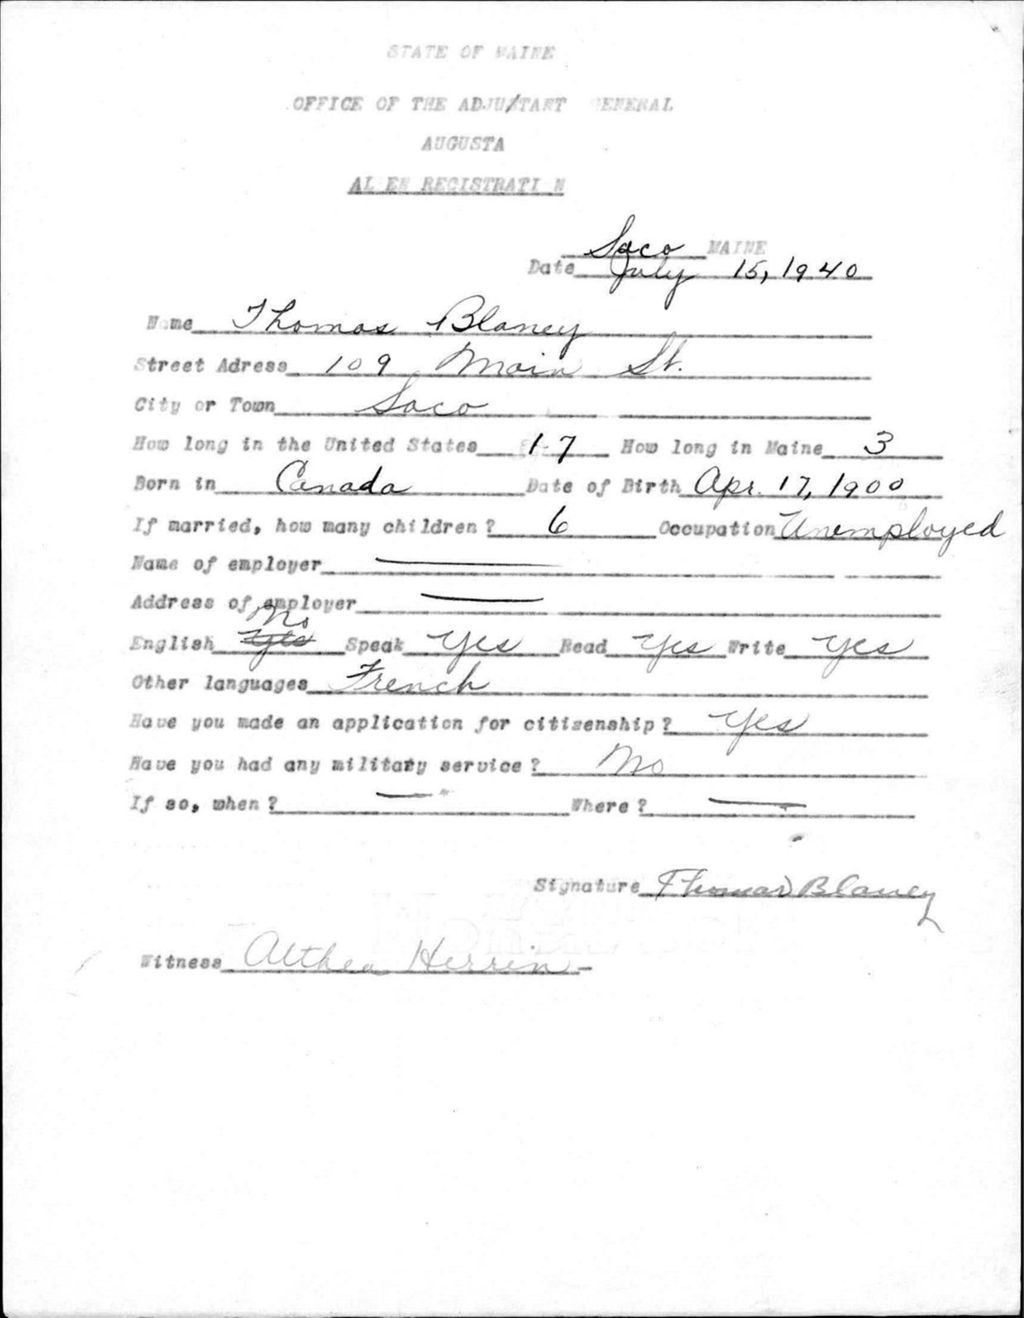 STATE OF MAINE
OFFICE OF THE ADJU/TANT GENERAL
AUGUSTA
ALIEN REGISTRATION
Saco MAINE
Date July 15, 1940
Name Thomas Blaney
Street Adress 109 Main St.
City or Town Saco
How long in the United States 17 How long in Maine 3
Born in Canada Date of Birth Apr. 17, 1900
If married, how many children? 6 Occupation Unemployed
Name of employer
Address of employer
No
English Yes Speak Yes Read Yes Write Yes
Other languages French
Have you made an application for citizenship? Yes
Have you had any military service? No
If so, when? Where?
Signature Thomas Blaney
Witness Althea Herrin